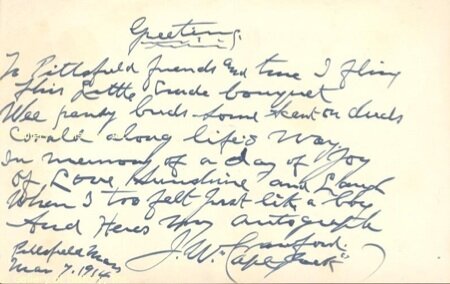 Greeting.
To Pittsfield friends and true I fling
This Little Crude bouquet
Wee pansy buds some
along life's way.
In memory of a day of Joy
Of Love, Sunshine and
When I too felt just like a boy
And Heres my autograph
J. W. Crawford.
Pittsfield Mass "Capt Jack"
Mar 7. 1914